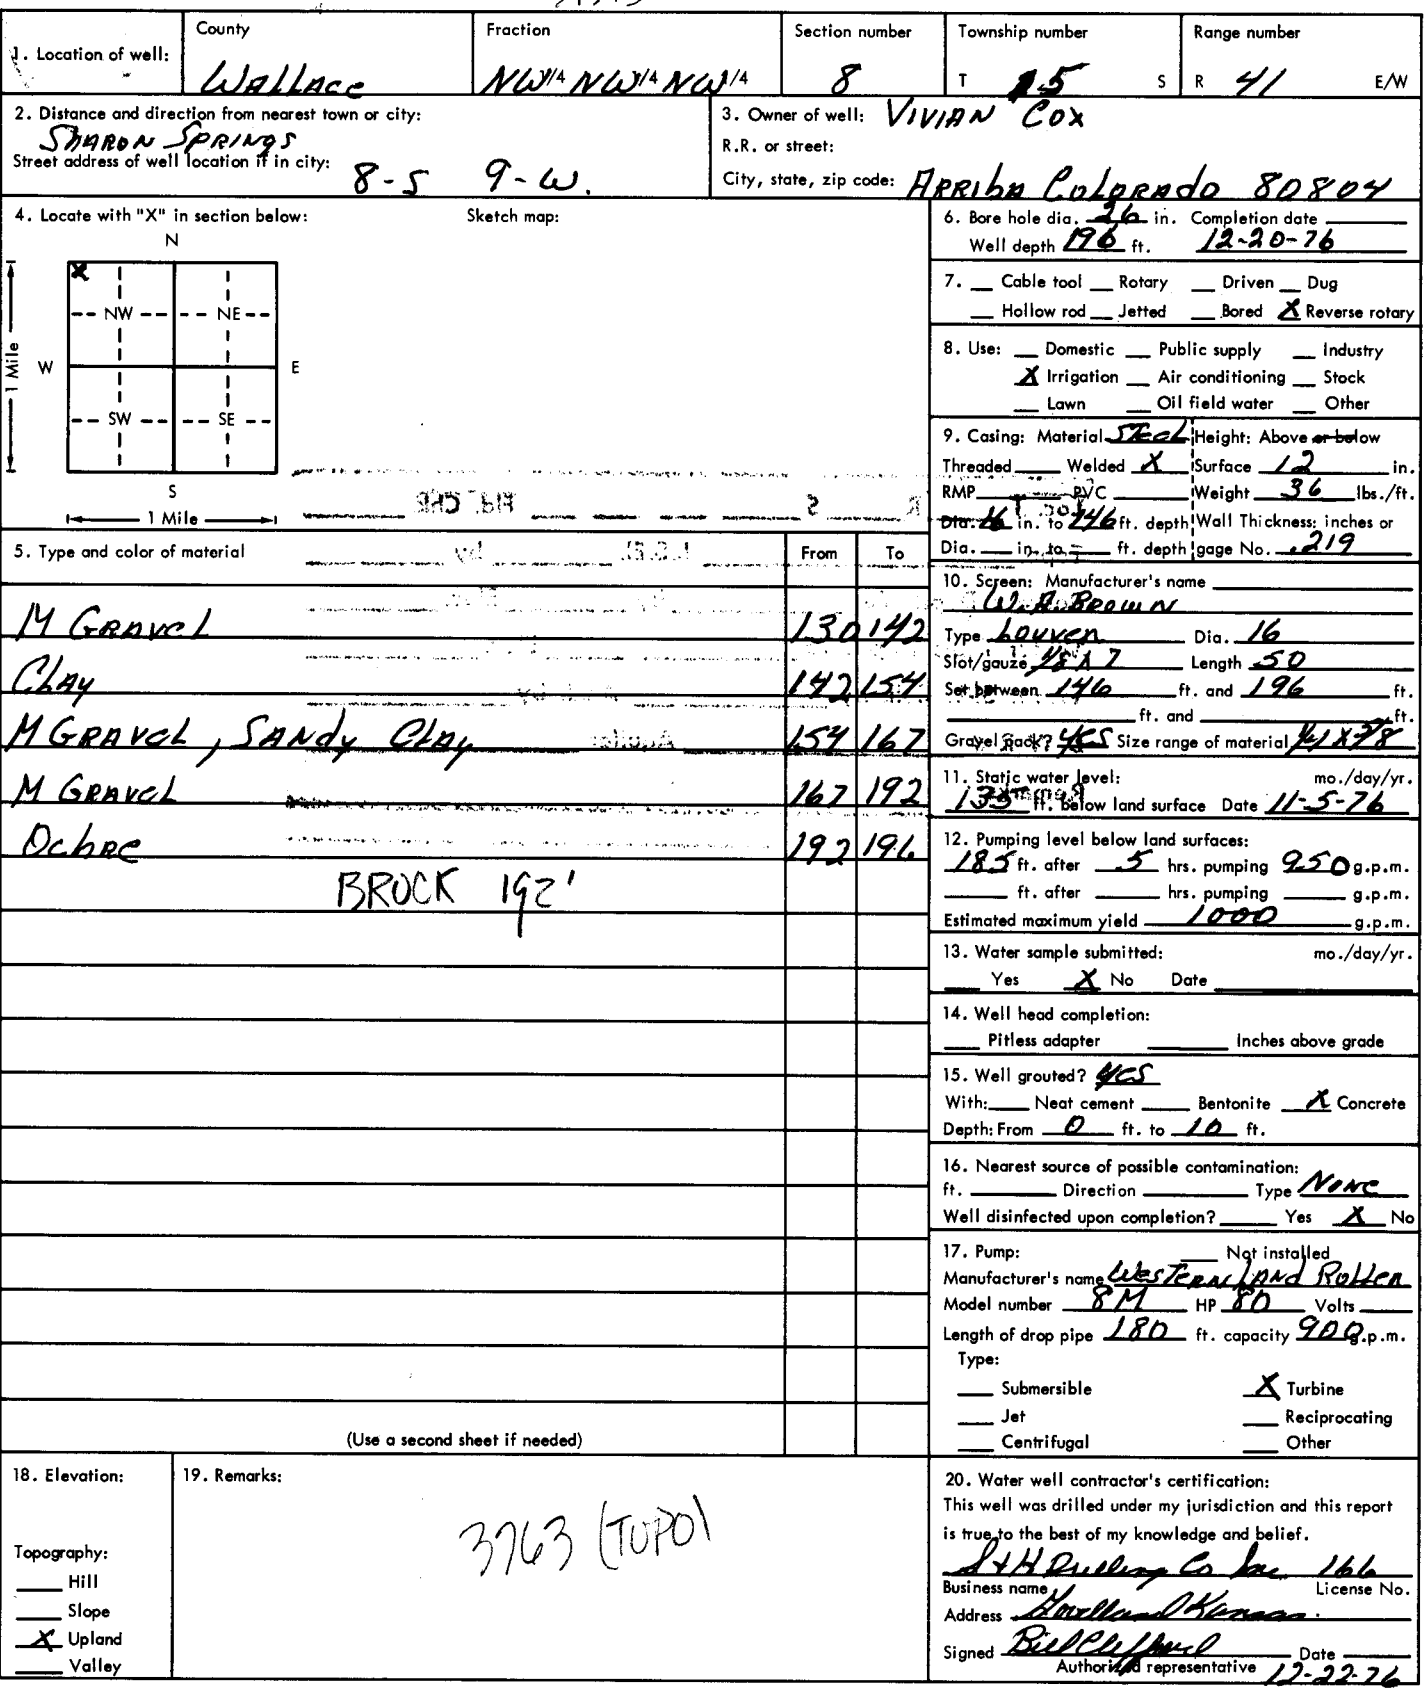 County Fraction Section number Township number Range number
1. Location of well: Wallace NW 1/4 NW 1/4 NW 1/4 8 T 15 S R 41 E/W
2. Distance and direction from nearest town or city:
Sharon Springs
Street address of well location if in city:
8-S 9-W.
3. Owner of well: Vivian Cox
R.R. or street:
City, state, zip code: Arriba Colorado 80804
4. Locate with "X" in section below: Sketch map:
N
X
NW NE
W E
SW SE
S
1 Mile
1 Mile
5. Type and color of material From To
M Gravel 130 142
Clay 142 154
M Gravel, Sandy Clay 154 167
M Gravel 167 192
Ochre 192 196
BROCK 192'
(Use a second sheet if needed)
6. Bore hole dia. 26 in. Completion date
Well depth 196 ft. 12-20-76
7. Cable tool Rotary Driven Dug
Hollow rod Jetted Bored X Reverse rotary
8. Use: Domestic Public supply Industry
X Irrigation Air conditioning Stock
Lawn Oil field water Other
9. Casing: Material Steel Height: Above or below
Threaded Welded X Surface 12 in.
RMP PVC Weight 36 lbs./ft.
Dia. 16 in. to 146 ft. depth Wall Thickness: inches or
Dia. in. to ft. depth gage No. .219
10. Screen: Manufacturer's name
W.A. Brown
Type Louver Dia. 16
Slot/gauze 1/8 X 7 Length 50
Set between 146 ft. and 196 ft.
ft. and ft.
Gravel pack? yes Size range of material 1/4 X 3/8
11. Static water level: mo./day/yr.
135 ft. below land surface Date 11-5-76
12. Pumping level below land surfaces:
185 ft. after 5 hrs. pumping 950 g.p.m.
ft. after hrs. pumping g.p.m.
Estimated maximum yield 1000 g.p.m.
13. Water sample submitted: mo./day/yr.
Yes X No Date
14. Well head completion:
Pitless adapter Inches above grade
15. Well grouted? yes
With: Neat cement Bentonite X Concrete
Depth: From 0 ft. to 10 ft.
16. Nearest source of possible contamination:
ft. Direction Type None
Well disinfected upon completion? Yes X No
17. Pump: Not installed
Manufacturer's name Western Land Roller
Model number 8M HP 80 Volts
Length of drop pipe 180 ft. capacity 900 g.p.m.
Type:
Submersible X Turbine
Jet Reciprocating
Centrifugal Other
18. Elevation:
Topography:
Hill
Slope
X Upland
Valley
19. Remarks:
3763 (TOPO)
20. Water well contractor's certification:
This well was drilled under my jurisdiction and this report
is true to the best of my knowledge and belief.
S & H Drilling Co Inc 166
Business name License No.
Address Goodland Kansas.
Signed Bill Clifford Date
Authorized representative 12-22-76